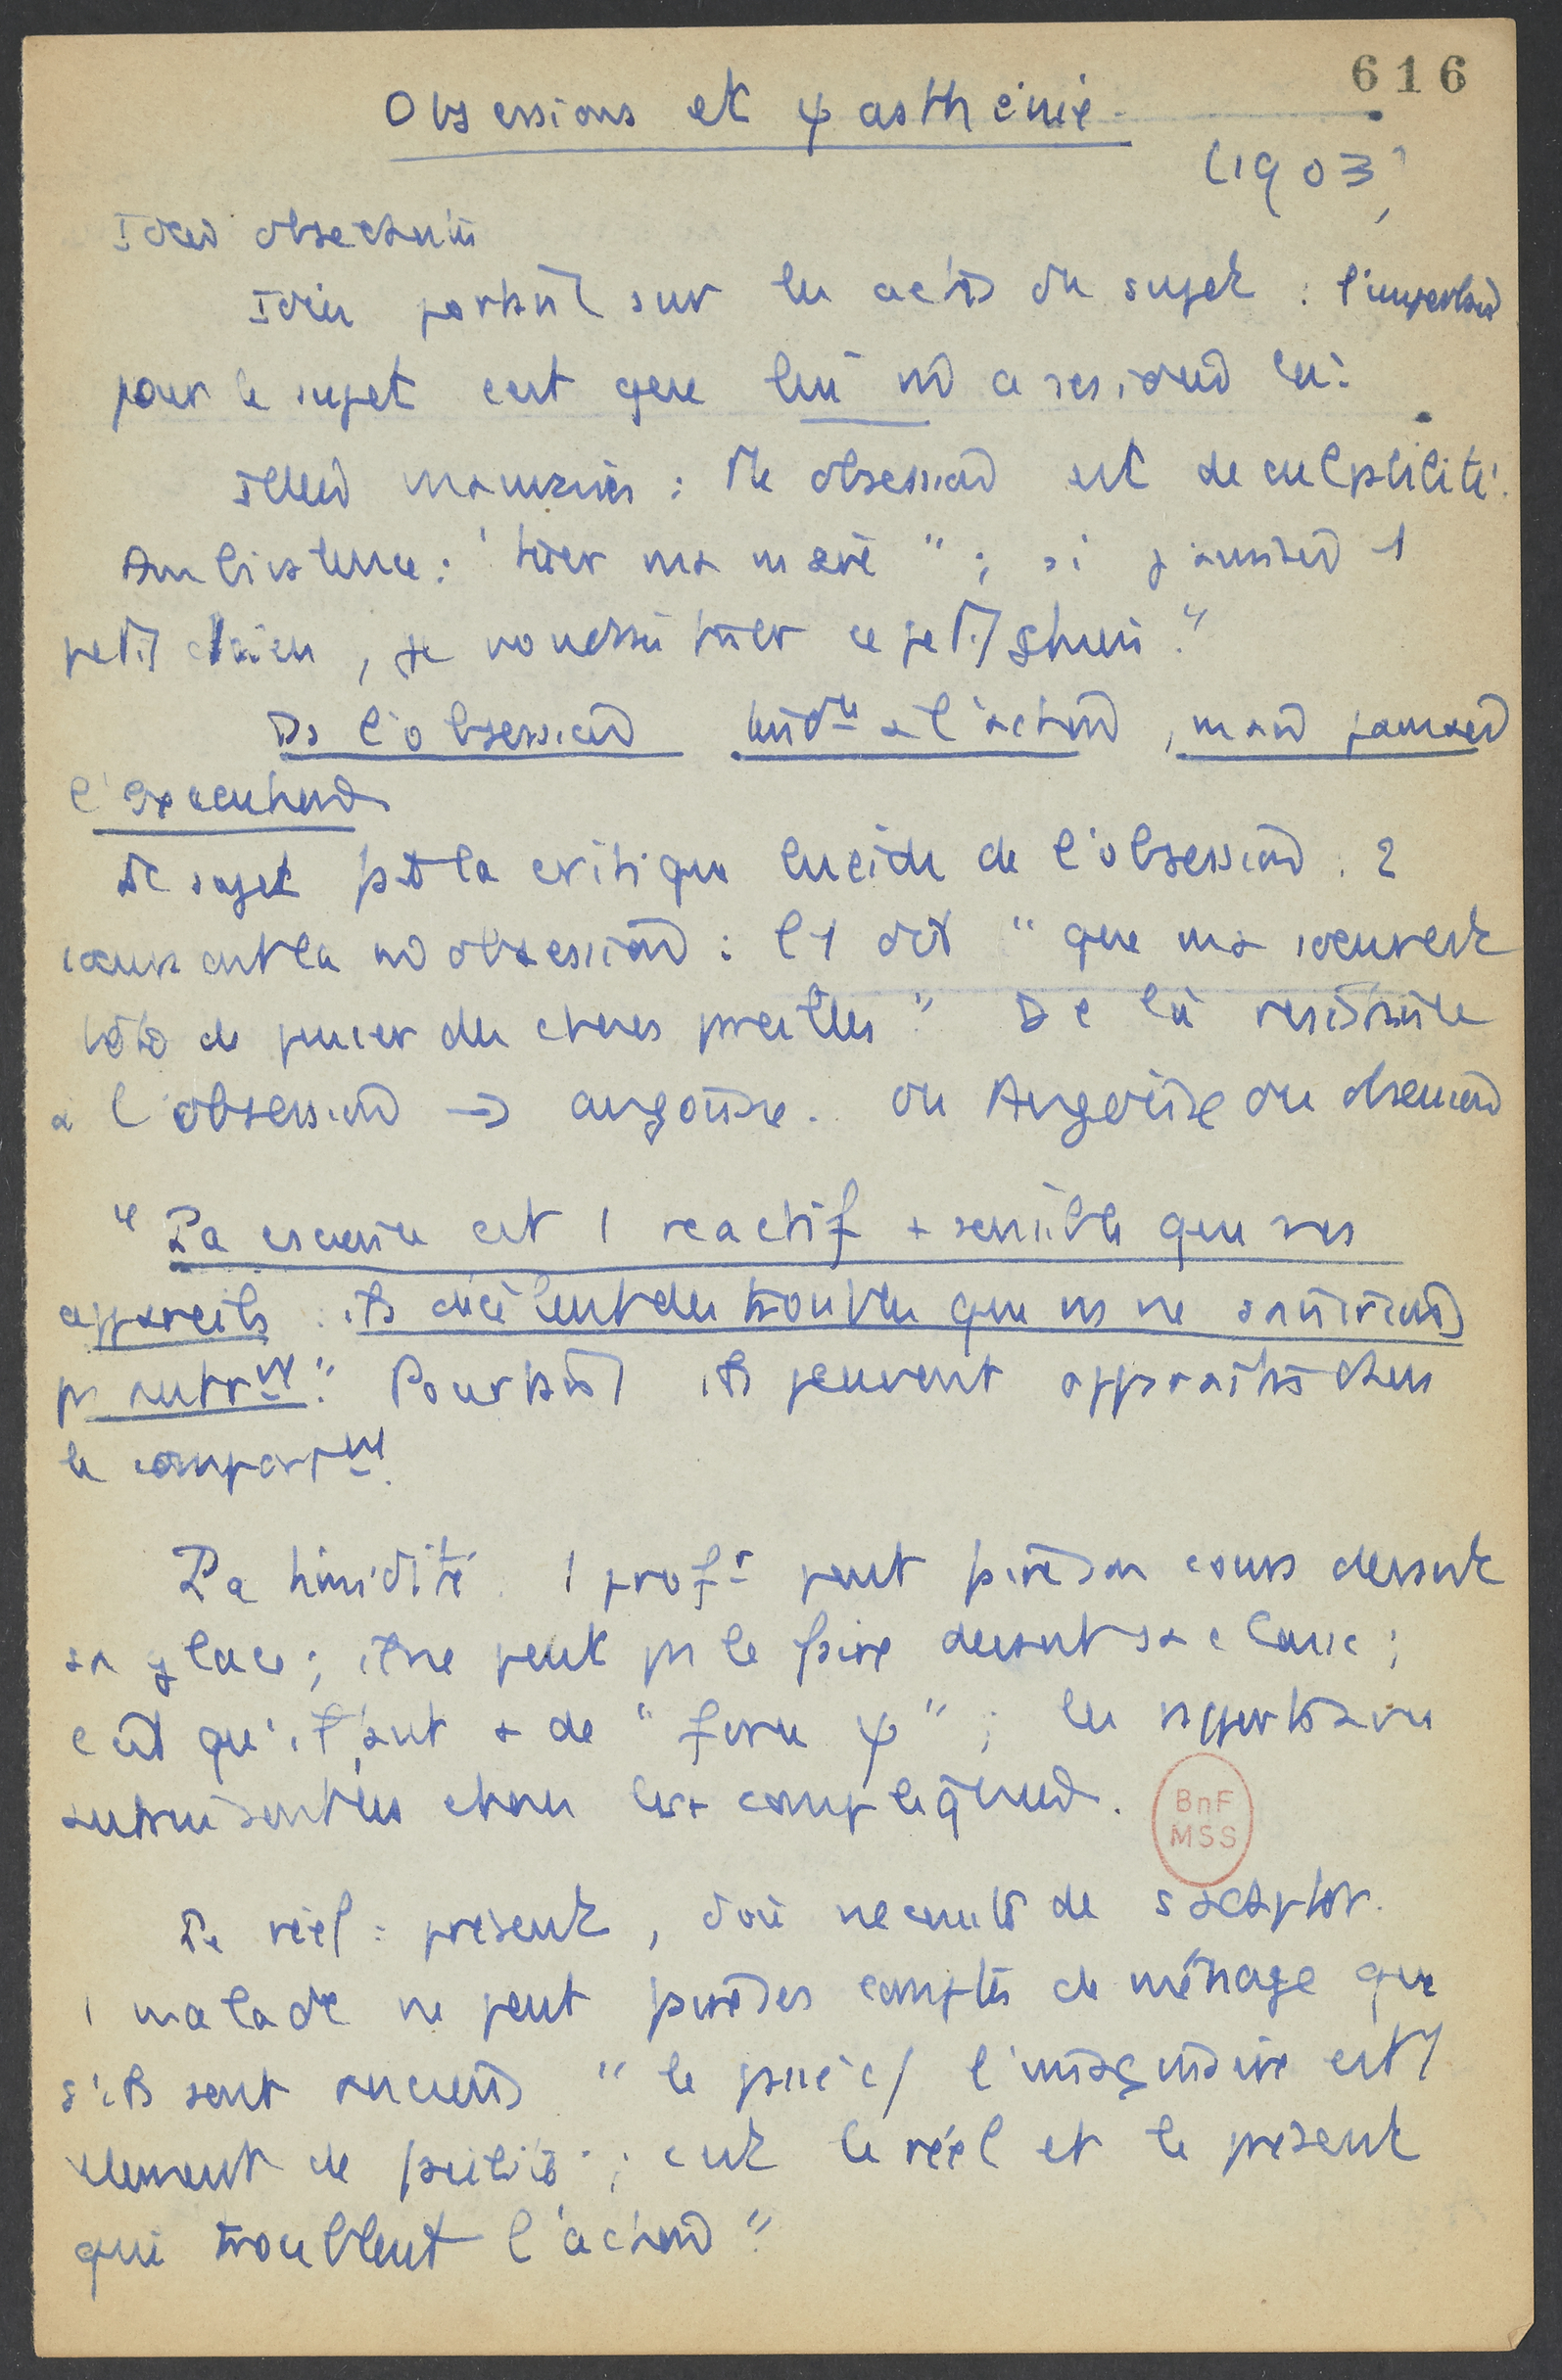 616
Obsessions et ψasthénie.
(1903)
Idées obsédantes
Idées portant sur les actes du sujet : l'important
pour le sujet c'est que
: l'obsession est de culpabilité.
Ambivalence : "tuer ma mère" ; si j'aimais 1
petit chien, je voudrais tuer ce petit chien."
Ds l'obsession tend^ce à l'action, mais jamais
l'exécution
Le sujet fait la critique lucide de l'obsession. 2
: l'1 dit "que ma
de penser des choses pareilles" De là résistance
à l'obsession → angoisse. ou Angoisse ou obsession
"La est 1 réactif + sensible que nos
appareils : ils décèlent des troubles que ns ne saurions
pas autr^mt." Pourtant ils peuvent apparaître dans
le comport^mt.
La timidité. 1 prof^r peut faire son cours devant
sa glace ; il ne peut pas le faire devant sa classe ;
c'est qu'il faut + de "force ψ" ; les
choses + compliquées.
Le réel : présent, d'où nécessité de s'adapter.
1 malade ne peut faire ses comptes de ménage que
s'ils sont anciens "le passé c/ l'imaginaire est 1
élément de facilité ; c'est le réel et le présent
qui troublent l'action"
BnF
MSS